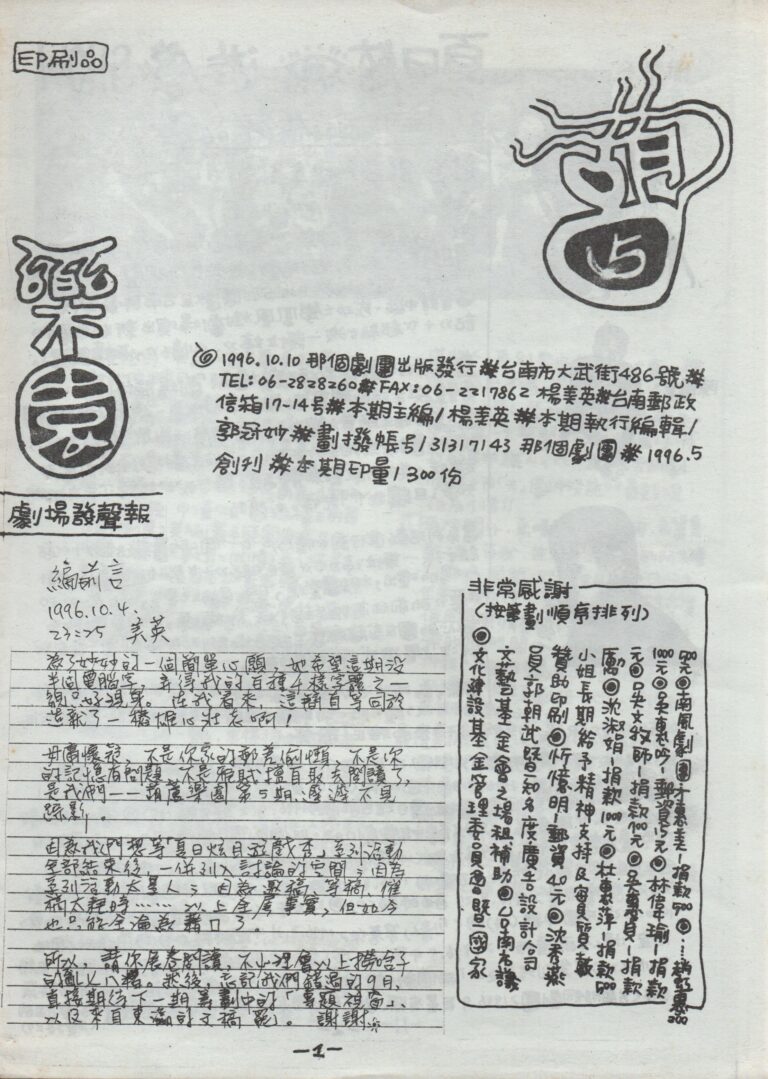 印刷品
5
樂園
劇場發聲報
1996.10.10 那個劇團出版發行※台南市大武街486號※
TEL:06-2828260※FAX:06-2217862 楊美英※台南郵政
信箱17-14号※本期主編/楊美英※本期執行編輯/
郭冠妙※劃撥帳号/31317143 那個劇團※1996.5
創刊※本期印量/300份
編前言
1996.10.4.
23:25 美英
為了妙妙的一個簡單心願，她希望這期沒
半個電腦字，
在我看來，這簡直等同於
造就了一樁雄心壯志啊！
毋需懷疑，不是你家的郵差偷懶，不是你
的記憶有問題，不是
是我們——葫蘆樂園第5期遲遲不見
蹤影。
因為我們想等「夏日炫目遊戲秀」系列活動
全部結束後，一併列入討論的空間；因為
系列活動太累人；因為邀稿、等稿、催
稿太耗時……以上全屬事實，但如今
也只能全淪為藉口了。
所以，請你展卷閱讀，不必理會以上
的亂七八糟。然後，忘記我們錯過的9月，
直接期待下一期籌劃中的「專題
以及來自東瀛的文稿吧。謝謝
非常感謝
(按筆劃順序排列)
500元◎南風劇團
1000元◎吳惠吟-郵資15元◎林偉瑜-捐款
元◎吳文牧師-捐款700元◎吳
勵◎沈淑娟-捐款1000元◎杜惠萍-捐款500
小姐長期給予精神支持及實質鼓
贊助印刷◎忻憶明-郵資40元◎沈秀燕
員郭朝武暨知名度廣告設計公司
文藝基金會之場租補助◎台南市議
◎文化建設基金管理委員會暨國家
-1-